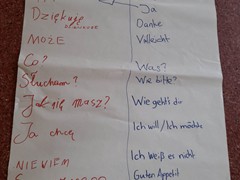 Ja
Dziękuję Danke
MOŻE Vielleicht
Co? Was?
Słucham? Wie bitte?
Jak się masz? Wie geht's dir
Ja chcę Ich will / Ich möchte
NIE WIEM Ich weiß es nicht
Guten Appetit